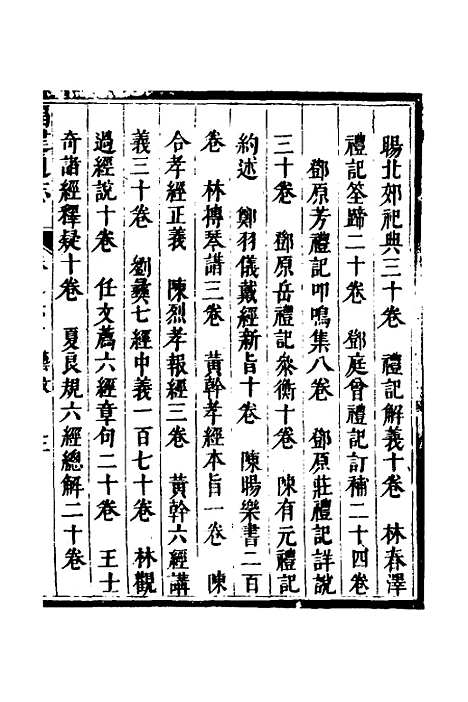 暘北郊祀典三十卷 禮記解義十卷 林春澤
禮記筌蹄二十卷 鄧庭曾禮記訂補二十四卷
鄧原芳禮記叩鳴集八卷 鄧原莊禮記詳說
三十卷 鄧原岳禮記參衡十卷 陳有元禮記
約述 鄭羽儀戴經新旨十卷 陳暘樂書二百
卷 林摶琴譜三卷 黃幹孝經本旨一卷 陳
合孝經正義 陳烈孝報經三卷 黃幹六經講
義三十卷 劉彝七經中義一百七十卷 林觀
過經說十卷 任文薦六經章句二十卷 王士
奇諸經釋疑十卷 夏良規六經總解二十卷